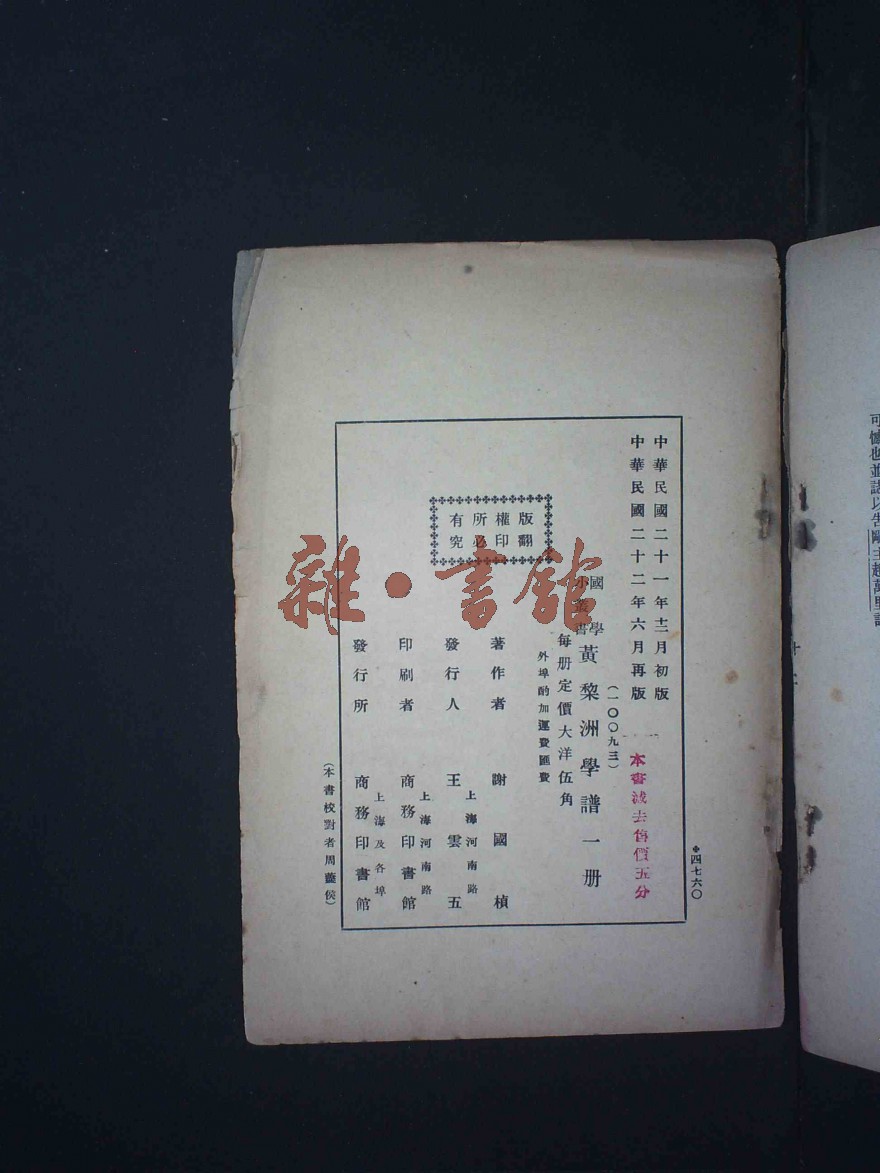 中華民國二十一年十二月初版
中華民國二十二年六月再版
❖四七六〇
(一〇〇九三)
本書減去售價五分
國學
小叢書
黃棃洲學譜一册
每册定價大洋伍角
外埠酌加運費匯費
版權所有
翻印必究
著作者 謝國楨
發行人 王雲五
上海河南路
印刷者 商務印書館
上海河南路
發行所 商務印書館
上海及各埠
(本書校對者周藎侯)
雜·書館